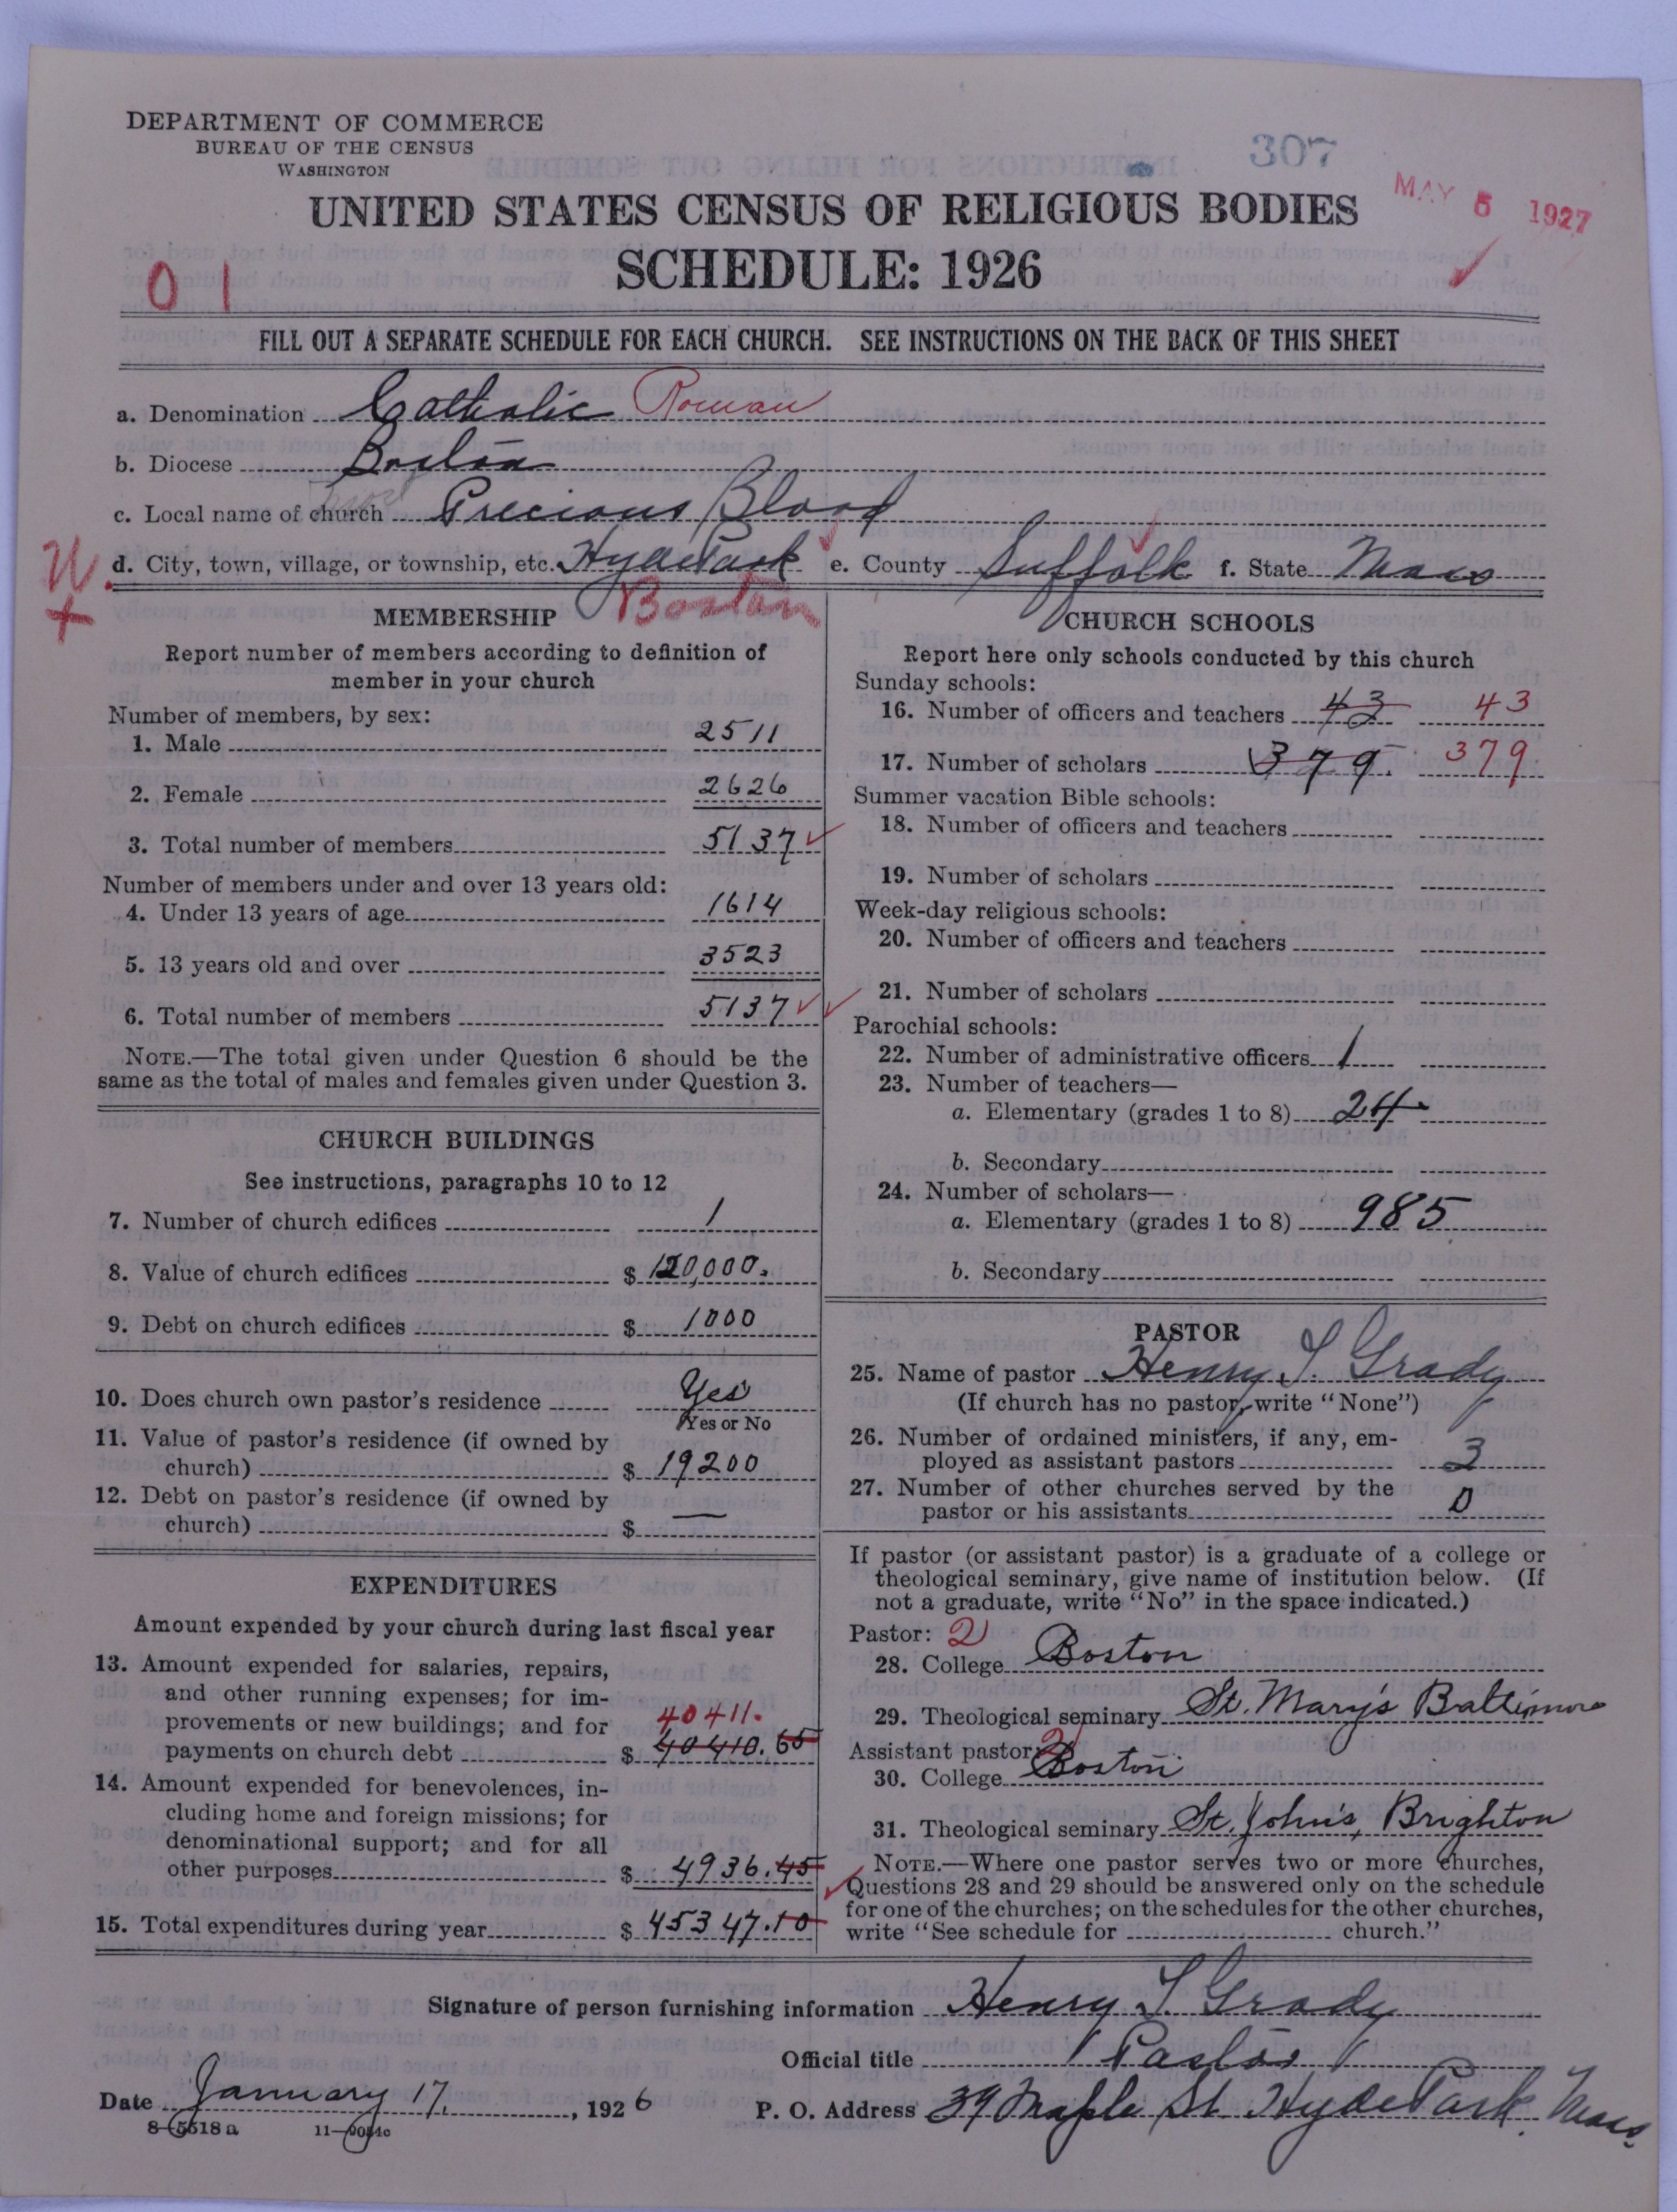 DEPARTMENT OF COMMERCE
BUREAU OF THE CENSUS
WASHINGTON
307
MAY 5 1927
UNITED STATES CENSUS OF RELIGIOUS BODIES
SCHEDULE: 1926
01
FILL OUT A SEPARATE SCHEDULE FOR EACH CHURCH. SEE INSTRUCTIONS ON THE BACK OF THIS SHEET
a. Denomination Catholic Roman
b. Diocese Boston
c. Local name of church Precious Blood
W. d. City, town, village, or township, etc. Hyde Park e. County Suffolk f. State Mass
Boston
MEMBERSHIP
Report number of members according to definition of
member in your church
Number of members, by sex:
1. Male 2511
2. Female 2626
3. Total number of members 5137
Number of members under and over 13 years old:
4. Under 13 years of age 1614
5. 13 years old and over 3523
6. Total number of members 5137
NOTE.—The total given under Question 6 should be the
same as the total of males and females given under Question 3.
CHURCH BUILDINGS
See instructions, paragraphs 10 to 12
7. Number of church edifices 1
8. Value of church edifices $ 120,000.
9. Debt on church edifices $ 1000
10. Does church own pastor's residence Yes
Yes or No
11. Value of pastor's residence (if owned by
church) $ 19200
12. Debt on pastor's residence (if owned by
church) $ —
EXPENDITURES
Amount expended by your church during last fiscal year
13. Amount expended for salaries, repairs,
and other running expenses; for im-
provements or new buildings; and for 40411.
payments on church debt $ 40410.65
14. Amount expended for benevolences, in-
cluding home and foreign missions; for
denominational support; and for all
other purposes $ 4936.45
15. Total expenditures during year $ 45347.10
CHURCH SCHOOLS
Report here only schools conducted by this church
Sunday schools:
16. Number of officers and teachers 43 43
17. Number of scholars 379. 379
Summer vacation Bible schools:
18. Number of officers and teachers
19. Number of scholars
Week-day religious schools:
20. Number of officers and teachers
21. Number of scholars
Parochial schools:
22. Number of administrative officers 1
23. Number of teachers—
a. Elementary (grades 1 to 8) 24
b. Secondary
24. Number of scholars—
a. Elementary (grades 1 to 8) 985
b. Secondary
PASTOR
25. Name of pastor Henry J. Grady
(If church has no pastor, write "None")
26. Number of ordained ministers, if any, em-
ployed as assistant pastors 3
27. Number of other churches served by the
pastor or his assistants 0
If pastor (or assistant pastor) is a graduate of a college or
theological seminary, give name of institution below. (If
not a graduate, write "No" in the space indicated.)
Pastor: 2
28. College Boston
29. Theological seminary St. Mary's Baltimore
Assistant pastor: 2
30. College Boston
31. Theological seminary St. John's, Brighton
NOTE.—Where one pastor serves two or more churches,
Questions 28 and 29 should be answered only on the schedule
for one of the churches; on the schedules for the other churches,
write "See schedule for church."
Signature of person furnishing information Henry J. Grady
Official title Pastor
Date January 17, 1926
P. O. Address 39 Maple St. Hyde Park, Mass.
8-5518 a